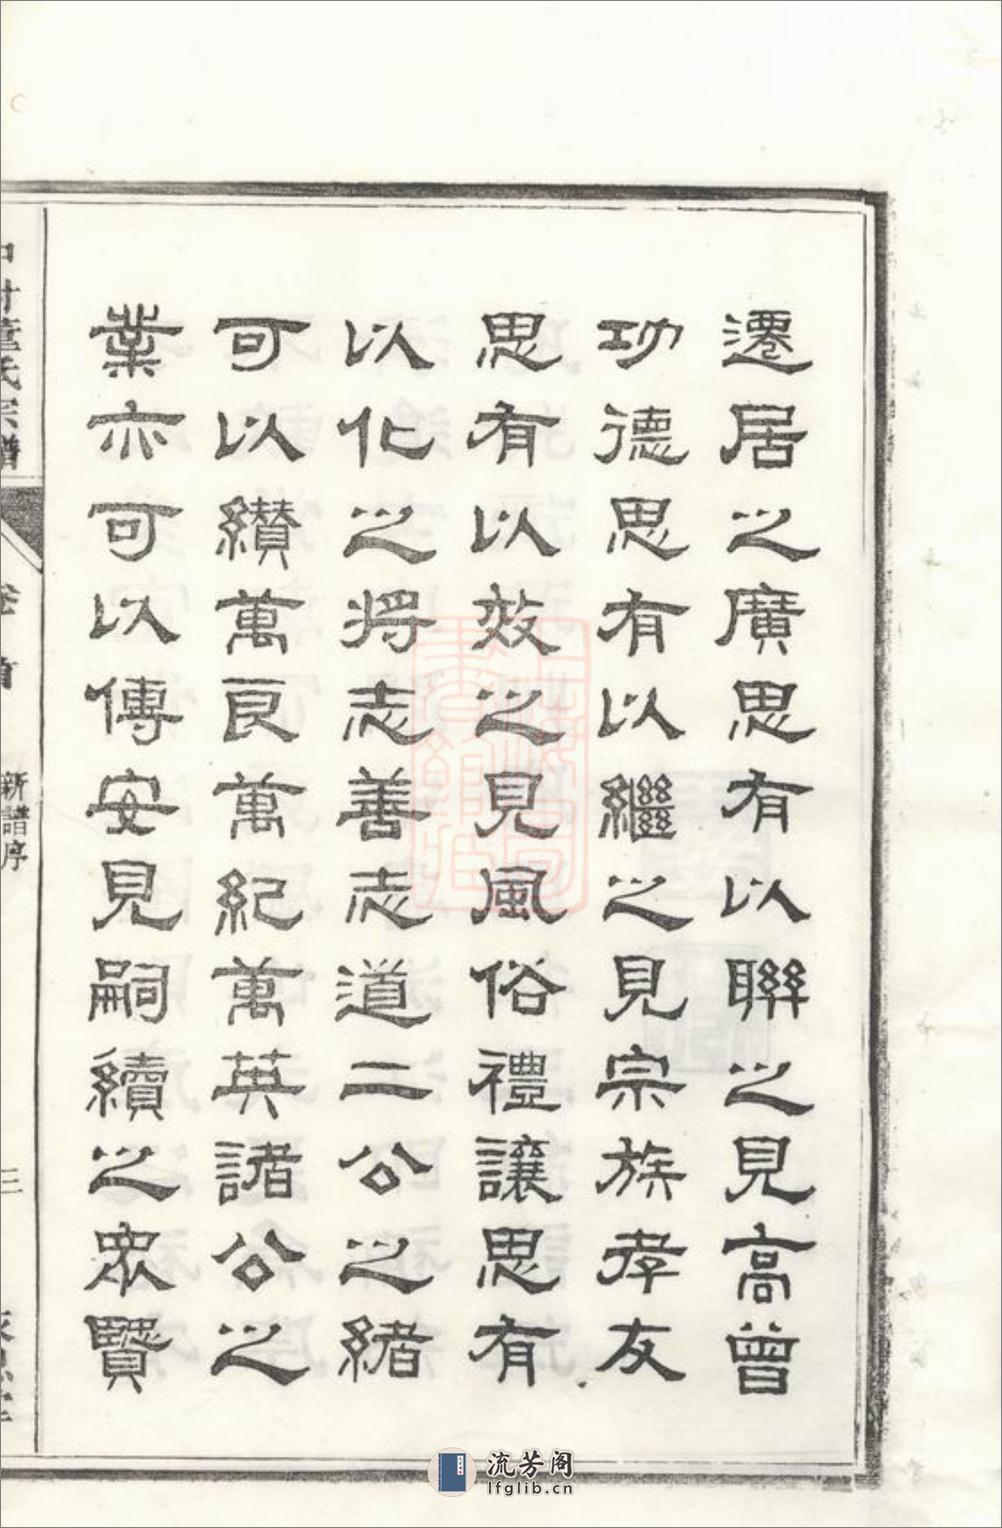 遷居之廣思有以聯之見高曾
功德思有以繼之見宗族孝友
思有以效之見風俗禮讓思有
以化之將志善志道二公之緒
可以纘萬良萬紀萬英諸公之
業亦可以傳安見嗣續之眾賢
董氏宗譜
卷首
新譜序
三
流芳阁
lfglib.cn